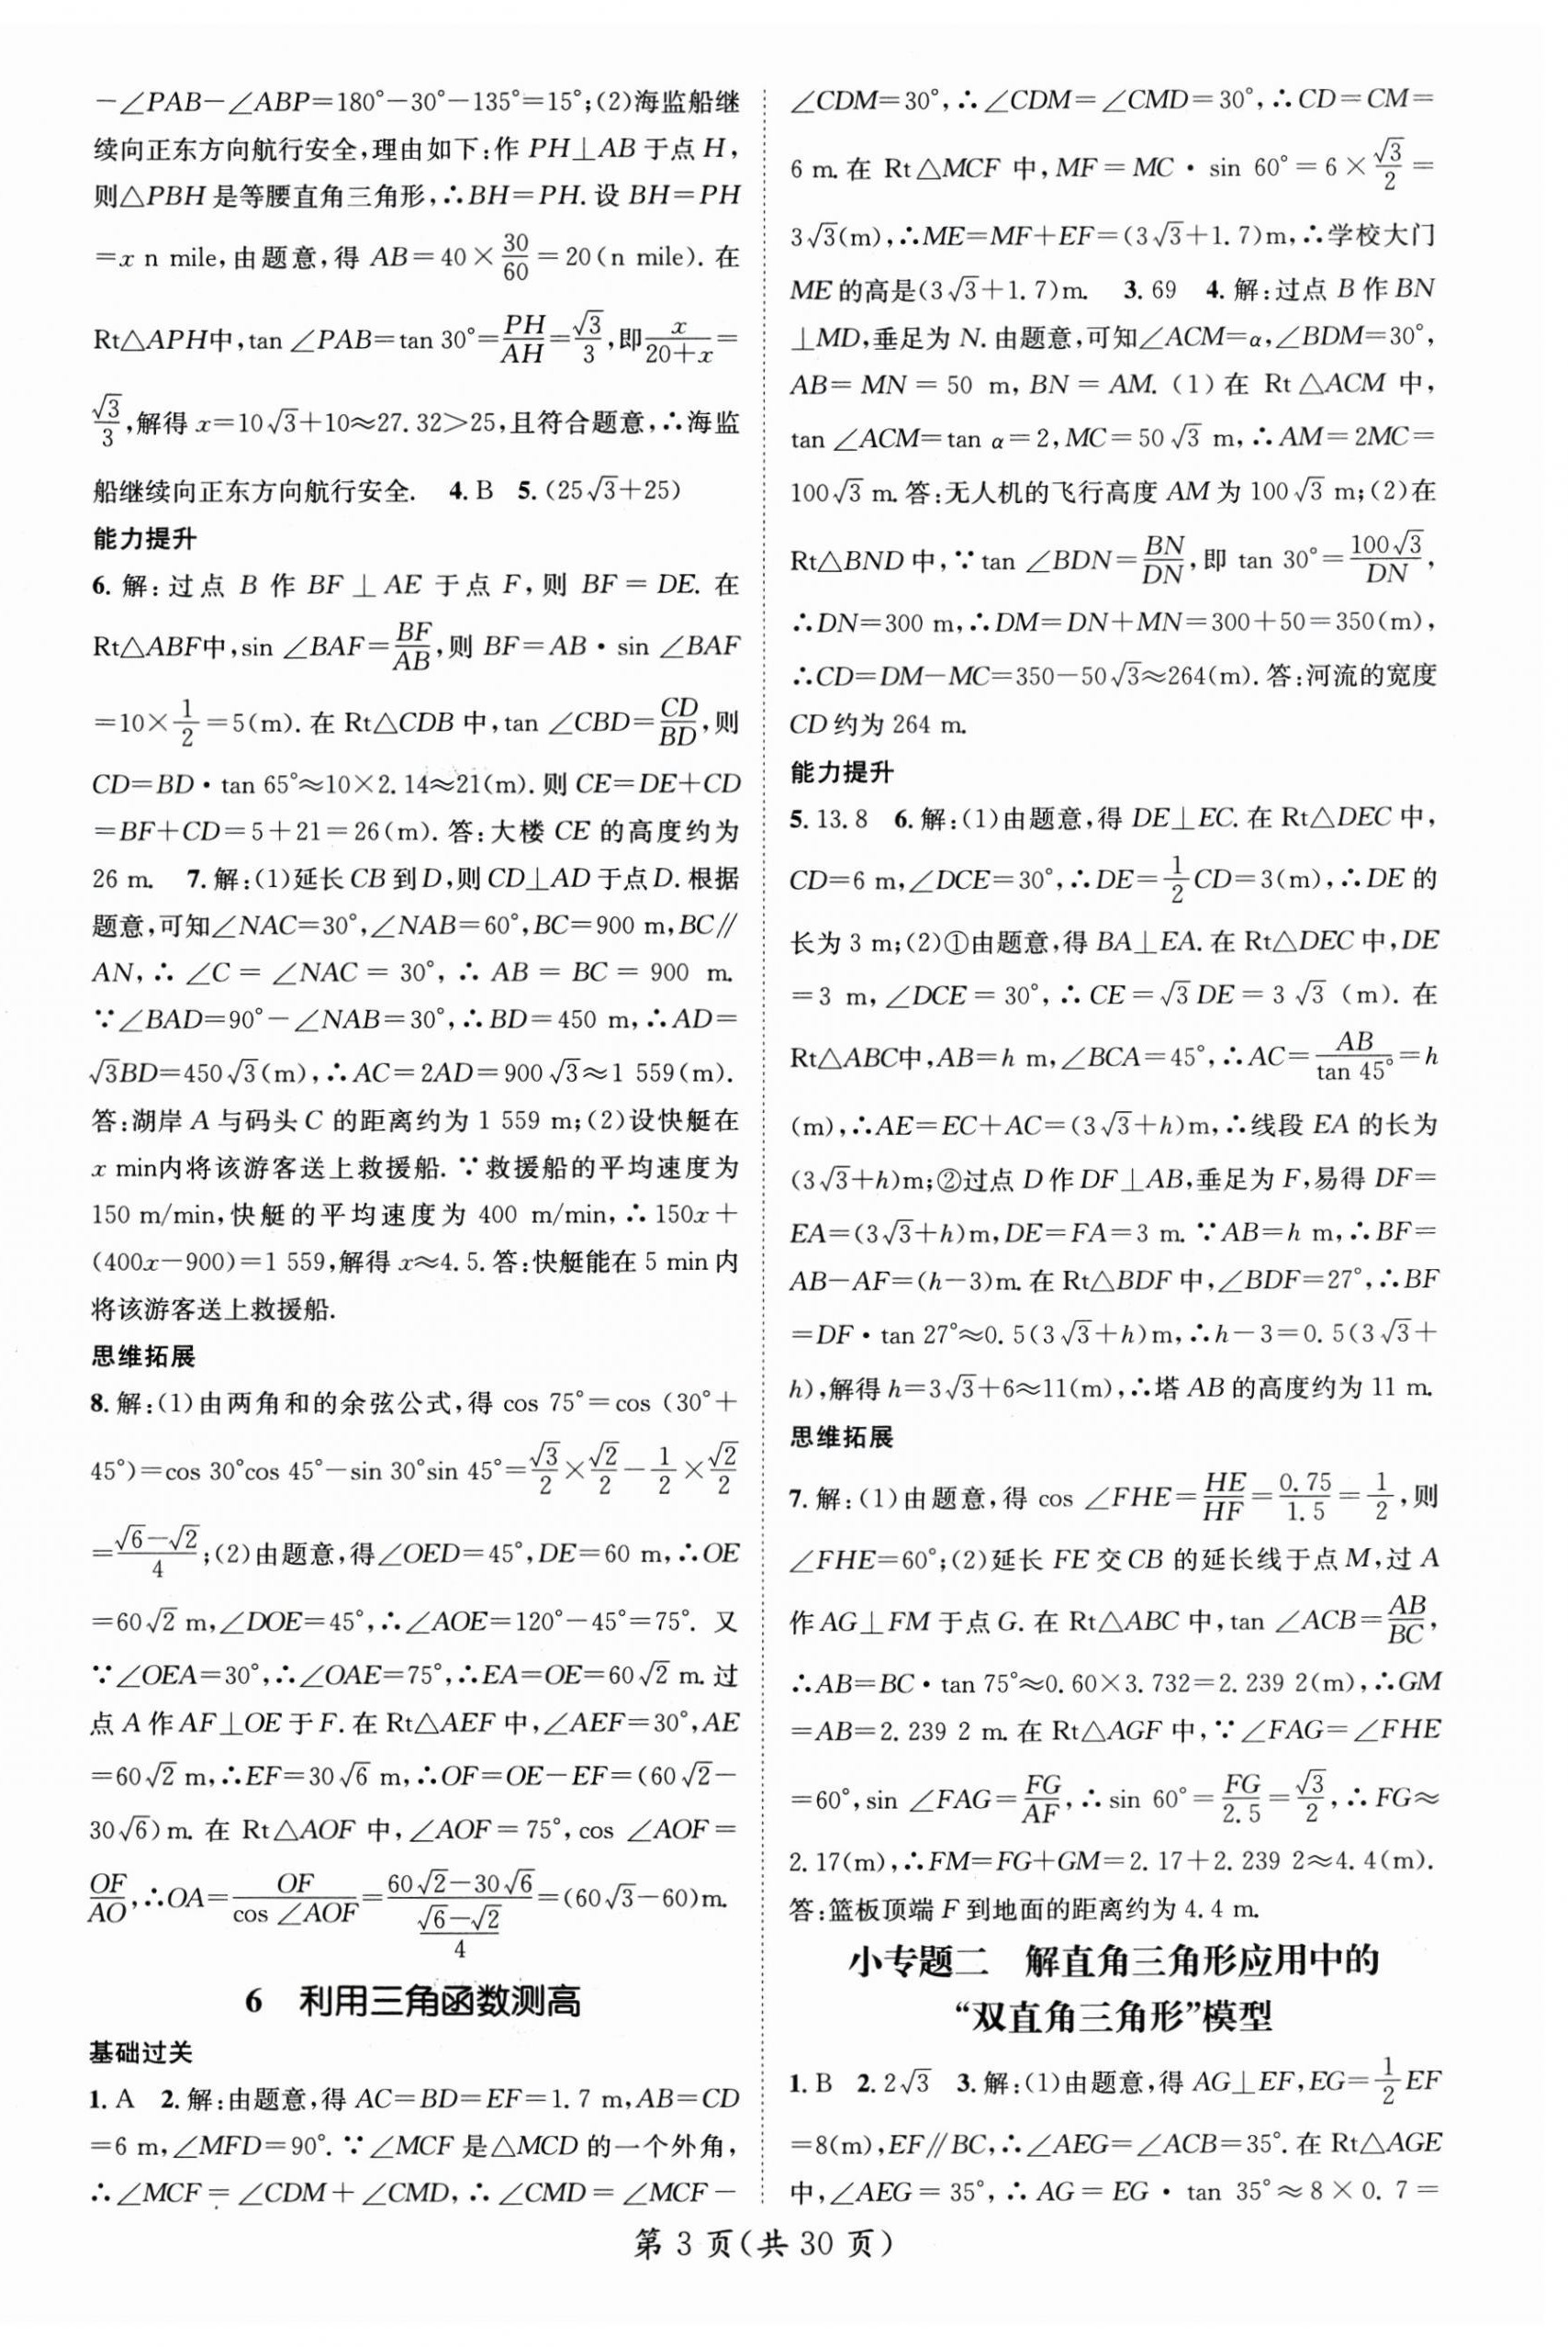 －∠PAB－∠ABP＝180°－30°－135°＝15°；(2)海监船继
续向正东方向航行安全，理由如下：作 PH⊥AB 于点 H，
则△PBH 是等腰直角三角形，∴BH＝PH. 设 BH＝PH
＝x n mile，由题意，得 AB＝40×30/60＝20(n mile). 在
Rt△APH中，tan ∠PAB＝tan 30°＝PH/AH＝√3/3，即x/(20＋x)＝
√3/3，解得 x＝10√3＋10≈27.32＞25，且符合题意，∴海监
船继续向正东方向航行安全. 4. B 5. (25√3＋25)
能力提升
6. 解：过点 B 作 BF⊥AE 于点 F，则 BF＝DE. 在
Rt△ABF中，sin ∠BAF＝BF/AB，则 BF＝AB·sin ∠BAF
＝10×1/2＝5(m). 在 Rt△CDB 中，tan ∠CBD＝CD/BD，则
CD＝BD·tan 65°≈10×2.14≈21(m). 则 CE＝DE＋CD
＝BF＋CD＝5＋21＝26(m). 答：大楼 CE 的高度约为
26 m. 7. 解：(1)延长 CB 到 D，则 CD⊥AD 于点 D. 根据
题意，可知∠NAC＝30°，∠NAB＝60°，BC＝900 m，BC∥
AN，∴∠C＝∠NAC＝30°，∴AB＝BC＝900 m.
∵∠BAD＝90°－∠NAB＝30°，∴BD＝450 m，∴AD＝
√3BD＝450√3(m)，∴AC＝2AD＝900√3≈1 559(m).
答：湖岸 A 与码头 C 的距离约为 1 559 m；(2)设快艇在
x min内将该游客送上救援船. ∵救援船的平均速度为
150 m/min，快艇的平均速度为 400 m/min，∴150x＋
(400x－900)＝1 559，解得 x≈4.5. 答：快艇能在 5 min 内
将该游客送上救援船.
思维拓展
8. 解：(1)由两角和的余弦公式，得 cos 75°＝cos (30°＋
45°)＝cos 30°cos 45°－sin 30°sin 45°＝√3/2×√2/2－1/2×√2/2
＝(√6－√2)/4；(2)由题意，得∠OED＝45°，DE＝60 m，∴OE
＝60√2 m，∠DOE＝45°，∴∠AOE＝120°－45°＝75°. 又
∵∠OEA＝30°，∴∠OAE＝75°，∴EA＝OE＝60√2 m. 过
点 A 作 AF⊥OE 于 F. 在 Rt△AEF 中，∠AEF＝30°，AE
＝60√2 m，∴EF＝30√6 m，∴OF＝OE－EF＝(60√2－
30√6)m. 在 Rt△AOF 中，∠AOF＝75°，cos ∠AOF＝
OF/AO，∴OA＝OF/cos ∠AOF＝(60√2－30√6)/((√6－√2)/4)＝(60√3－60)m.
6 利用三角函数测高
基础过关
1. A 2. 解：由题意，得 AC＝BD＝EF＝1.7 m，AB＝CD
＝6 m，∠MFD＝90°. ∵∠MCF 是△MCD 的一个外角，
∴∠MCF＝∠CDM＋∠CMD，∴∠CMD＝∠MCF－
∠CDM＝30°，∴∠CDM＝∠CMD＝30°，∴CD＝CM＝
6 m. 在 Rt△MCF 中，MF＝MC·sin 60°＝6×√3/2＝
3√3(m)，∴ME＝MF＋EF＝(3√3＋1.7)m，∴学校大门
ME 的高是(3√3＋1.7)m. 3. 69 4. 解：过点 B 作 BN
⊥MD，垂足为 N. 由题意，可知∠ACM＝α，∠BDM＝30°，
AB＝MN＝50 m，BN＝AM. (1)在 Rt△ACM 中，
tan ∠ACM＝tan α＝2，MC＝50√3 m，∴AM＝2MC＝
100√3 m. 答：无人机的飞行高度 AM 为 100√3 m；(2)在
Rt△BND 中，∵tan ∠BDN＝BN/DN，即 tan 30°＝100√3/DN，
∴DN＝300 m，∴DM＝DN＋MN＝300＋50＝350(m)，
∴CD＝DM－MC＝350－50√3≈264(m). 答：河流的宽度
CD 约为 264 m.
能力提升
5. 13.8 6. 解：(1)由题意，得 DE⊥EC. 在 Rt△DEC 中，
CD＝6 m，∠DCE＝30°，∴DE＝1/2CD＝3(m)，∴DE 的
长为 3 m；(2)①由题意，得 BA⊥EA. 在 Rt△DEC 中，DE
＝3 m，∠DCE＝30°，∴CE＝√3DE＝3√3 (m). 在
Rt△ABC中，AB＝h m，∠BCA＝45°，∴AC＝AB/tan 45°＝h
(m)，∴AE＝EC＋AC＝(3√3＋h)m，∴线段 EA 的长为
(3√3＋h)m；②过点 D 作 DF⊥AB，垂足为 F，易得 DF＝
EA＝(3√3＋h)m，DE＝FA＝3 m. ∵AB＝h m，∴BF＝
AB－AF＝(h－3)m. 在 Rt△BDF 中，∠BDF＝27°，∴BF
＝DF·tan 27°≈0.5(3√3＋h)m，∴h－3＝0.5(3√3＋
h)，解得 h＝3√3＋6≈11(m)，∴塔 AB 的高度约为 11 m.
思维拓展
7. 解：(1)由题意，得 cos ∠FHE＝HE/HF＝0.75/1.5＝1/2，则
∠FHE＝60°；(2)延长 FE 交 CB 的延长线于点 M，过 A
作 AG⊥FM 于点 G. 在 Rt△ABC 中，tan ∠ACB＝AB/BC，
∴AB＝BC·tan 75°≈0.60×3.732＝2.239 2(m)，∴GM
＝AB＝2.239 2 m. 在 Rt△AGF 中，∵∠FAG＝∠FHE
＝60°，sin ∠FAG＝FG/AF，∴sin 60°＝FG/2.5＝√3/2，∴FG≈
2.17(m)，∴FM＝FG＋GM＝2.17＋2.239 2≈4.4(m).
答：篮板顶端 F 到地面的距离约为 4.4 m.
小专题二 解直角三角形应用中的
“双直角三角形”模型
1. B 2. 2√3 3. 解：(1)由题意，得 AG⊥EF，EG＝1/2EF
＝8(m)，EF∥BC，∴∠AEG＝∠ACB＝35°. 在 Rt△AGE
中，∠AEG＝35°，∴AG＝EG·tan 35°≈8×0.7＝
第 3 页(共 30 页)